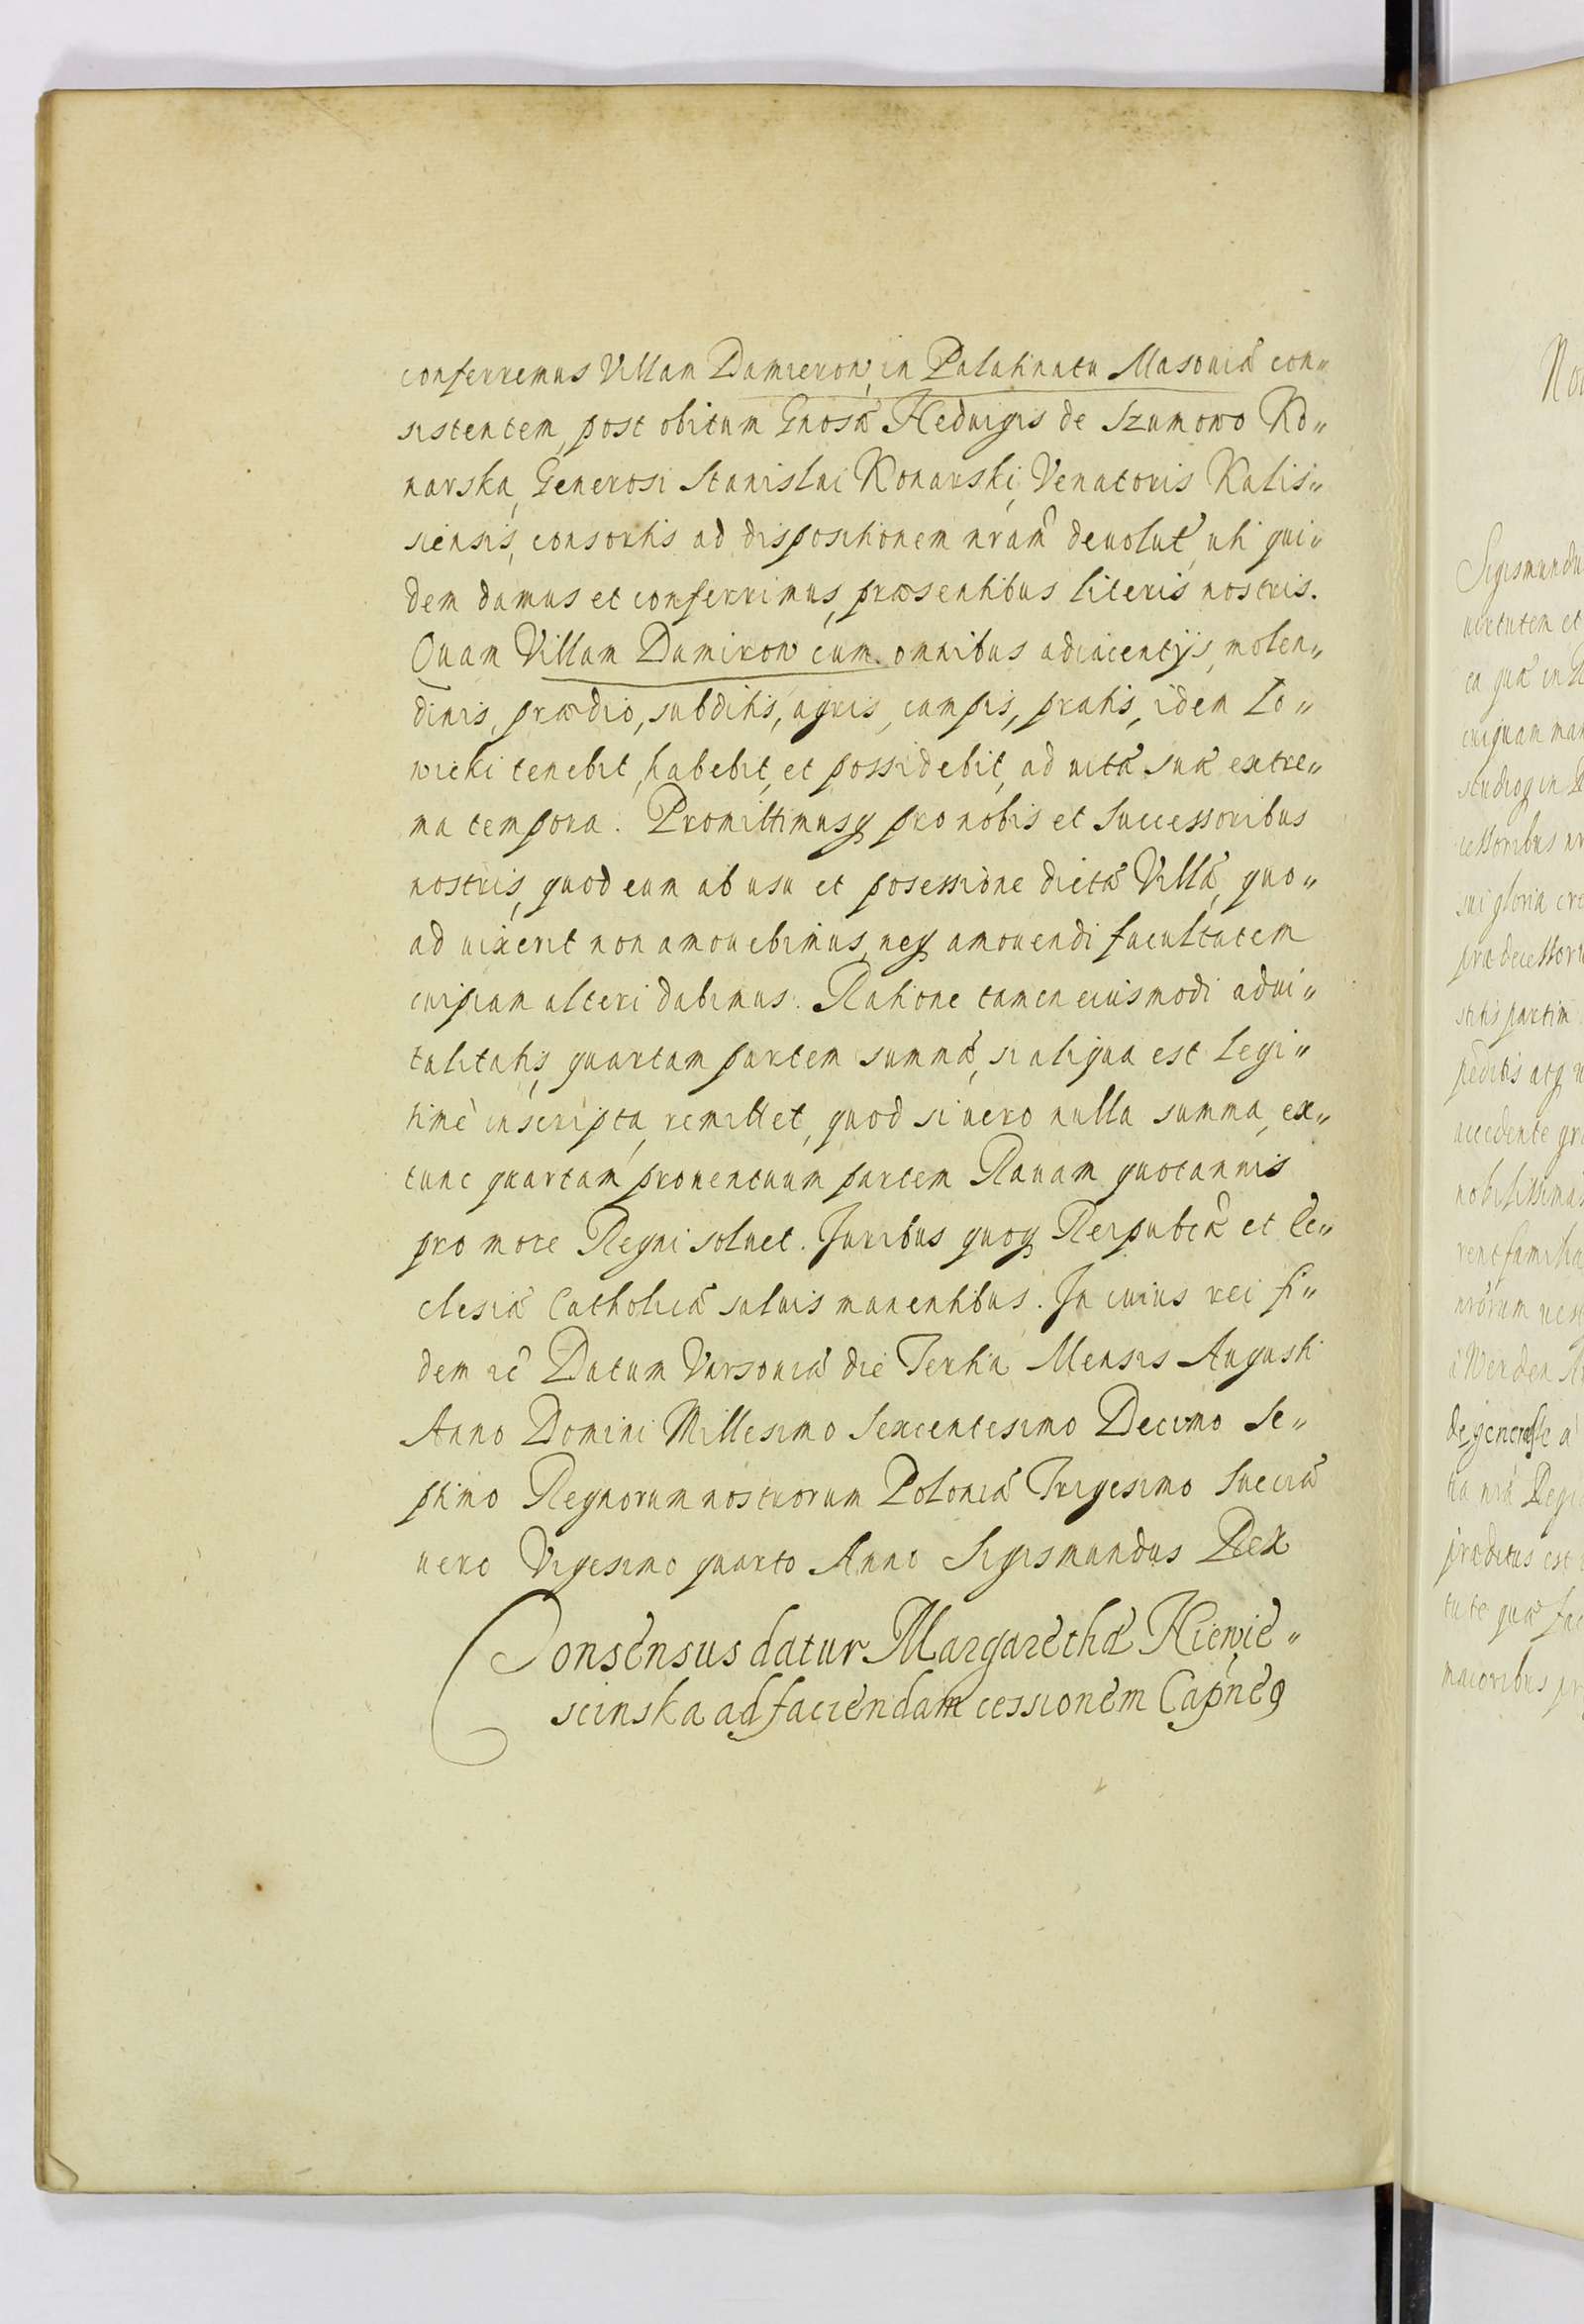 conferremus Villam Damieron, in Palatinatu Masoviæ con„
sistentem, post obitum Gnosæ Heduigis de Szumowo Ko„
narska, Generosi Stanislai Konarski, Venatoris Kalis„
siensis, consortis ad dispositionem nram̃ deuolut̃, uti qui„
dem damus et conferrimus, præsentibus literis nostris.
Quam Villam Damiron cum omnibus adiacentijs, molen„
dinis, prædio, subditis, agris, campis, pratis, idem Lo„
wicki tenebit, habebit, et possidebit, ad uitæ suæ extre„
ma tempora. Promittimusq pro nobis et Successoribus
nostris, quod eum ab usu et posessione dictæ Villæ, quo„
ad uixerit non amouebimus, neq amouendi facultatem
cuipiam alteri dabimus. Ratione tamen eiusmodi adui„
talitatis, quartam partem summæ, si aliqua est legi„
timè inscripta, remittet, quod si uero nulla summa, ex„
tunc quartam prouentuum partem Rauam quotannis
pro more Regni soluet. Juribus quoq Reipubcæ et Ec„
clesiæ Catholicæ saluis manentibus. In cuius rei fi„
dem ec̃ Datum Varsouiæ die Tertia Mensis Augusti
Anno Domini Millesimo Sexcentesimo Decimo Se„
ptimo Regnorum nostrorum Poloniæ Trigesimo Sueciæ
uero Vigesimo quarto Anno Sigismundus Rex
Consensus datur Margarethæ Kiewie„
scinska ad faciendam cessionem Capne9
Sigismundu
uirtutem et
ea quæ in
cuiquam man
studioq in
cessoribus nr
sui gloria cre
prædecessor
stitis partim
peditis atq
accedente gr
nobilissima
rent familia
nrorum
à Werden
degenerasse a
tia nra Regi
præditus est
tute quæ fac
maioribus pr